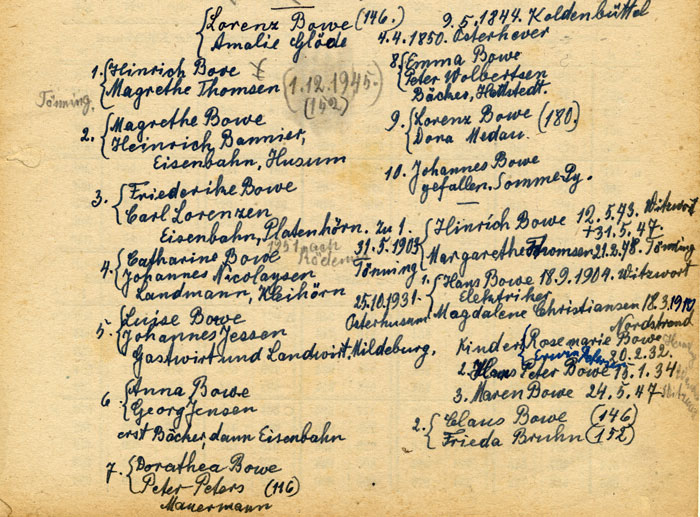 Lorenz Bowe (146.) 9.5.1844. Koldenbüttel
Amalie Glöde 4.4.1850. Osterhever
1. Hinrich Bove
Magrethe Thomsen (1.12.1945.)
(152)
Tönning,
2. Magrethe Bowe
Heinrich Bannier,
Eisenbahn, Husum
3. Friederike Bowe
Carl Lorenzen
Eisenbahn, Platenhörn.
4. Catharine Bowe
Johannes Nicolaysen
Landmann, Kleihörn
1951 nach
5. Luise Bowe
Johannes Jessen
Gastwirt und Landwirt, Mildeburg.
6. Anna Bowe
Georg Jensen
erst Bäcker, dann Eisenbahn
7. Dorathea Bowe
Peter Peters (116)
Mauermann
8. Emma Bowe
Peter Wolbertsen
Bäcker, Hettstedt.
9. Lorenz Bowe (180.)
Dora Medau.
10. Johannes Bowe
gefallen. Somme-Py.
zu 1.
31.5.1903
Tönning
Hinrich Bowe 12.5.73. Witzwort
+31.5.47.
Margarethe Thomsen 21.2.78. Tönning
25.10.1931
Osterhusum
1. Hans Bowe 18.9.1904. Witzwort
Elektriker
Magdalene Christiansen 18.3.1912
Nordstrand
Kinder Rosemarie Bowe
20.2.32.
2. Hans Peter Bowe 15.1.34
3. Maren Bowe 24.5.47
2. Claus Bowe (146)
Frieda Bruhn (152)